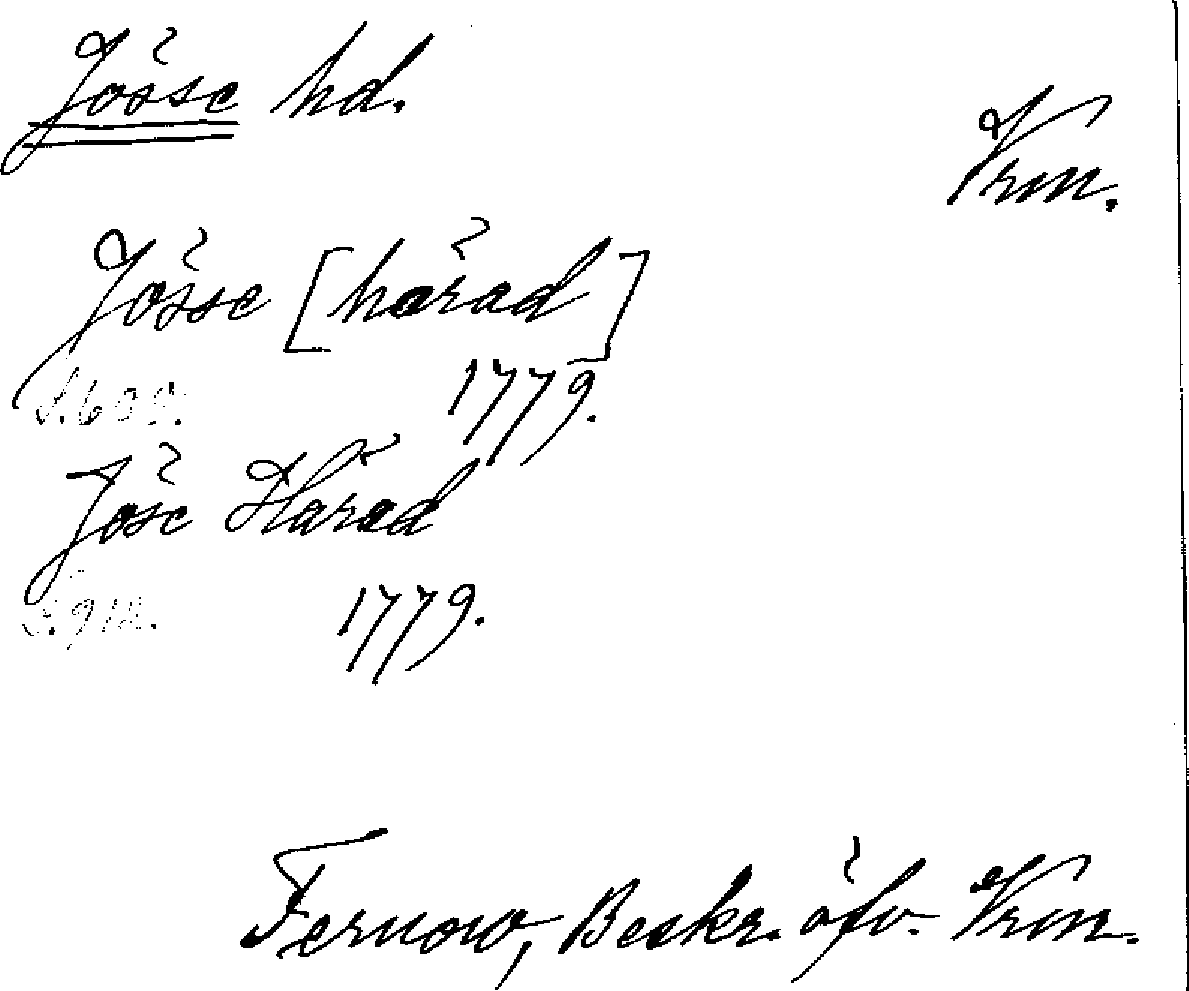 Jösse hd.
Vrm.
Jösse [härad]
1779.
Jöse Härad
S. 912. 1779.
Fernow, Beskr. öfv. Vrm.